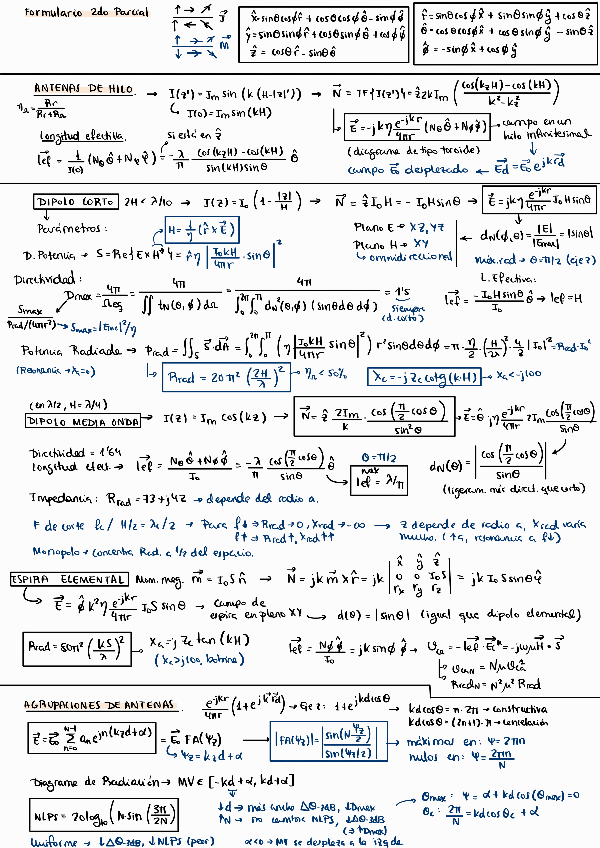 Formulario 2do Parcial
J
M
x̂ = sinθcosφ r̂ + cosθcosφ θ̂ - sinφ φ̂
ŷ = sinθsinφ r̂ + cosθsinφ θ̂ + cosφ φ̂
ẑ = cosθ r̂ - sinθ θ̂
r̂ = sinθcosφ x̂ + sinθsinφ ŷ + cosθ ẑ
θ̂ = cosθcosφ x̂ + cosθsinφ ŷ - sinθ ẑ
φ̂ = -sinφ x̂ + cosφ ŷ
ANTENAS DE HILO → I(z') = Im sin (k (H-|z'|)) → N⃗ = TF{I(z')} = ẑ 2k Im (cos(kzH) - cos(kH) / k² - kz²)
I(0) = Im sin(kH)
E⃗ = -jkη e^-jkr/4πr (Nθ θ̂ + Nφ φ̂) → campo en un hilo infinitesimal
(diagrama de tipo toroide)
campo E⃗o desplazado ← E⃗d = E⃗o e^jkrd
Longitud efectiva.
si está en ẑ
l⃗ef = 1/I(0) (Nθ θ̂ + Nφ φ̂) = -λ/π cos(kzH) - cos(kH) / sin(kH) sinθ θ̂
DIPOLO CORTO 2H < λ/10 → I(z) = Io (1 - |z|/H) → N⃗ = ẑ Io H = - Io H sinθ → E⃗ = jkη e^-jkr/4πr Io H sinθ
Parámetros:
H = 1/η (r̂ x E⃗)
Plano E → XZ, YZ
Plano H → XY
→ omnidireccional
dN(φ,θ) = |E|/|Emax| = |sinθ|
máx.rad → θ = π/2 (eje z)
D. Potencia → S = Re{E x H*} = r̂ η |Io k H/4πr · sinθ|²
Directividad:
Dmax = 4π/Ωeq = 4π / ∬ tN(θ,φ) dΩ = 4π / ∫∫ dN²(θ,φ) (sinθ dθ dφ) = 1'5
siempre (d. corto)
Smax / Prad/(4πr²) → Smax = |Einc|²/η
L. Efectiva:
l⃗ef = - Io H sinθ / Io θ̂ → lef = H
Potencia Radiada → Prad = ∬s S⃗·dA⃗ = ∫∫ (η |Io k H/4πr sinθ|²) r² sinθ dθ dφ = π · η/3 · (H/λ)² · 4 |Io|² = Rrad·Io²
(Resonancia → Xa = 0)
Rrad = 20π² (2H/λ)² → ηa < 50%
Xa = -j Zc cotg (k·H) → Xa < -j100
(en λ/2, H = λ/4)
DIPOLO MEDIA ONDA → I(z) = Im cos(kz) → N⃗ = ẑ 2Im/k · cos(π/2 cosθ)/sin²θ → E⃗ = θ̂ jη e^-jkr/4πr 2Im cos(π/2 cosθ)/sinθ
Directividad = 1'64
Longitud efect. → l⃗ef = Nθ θ̂ + Nφ φ̂ / Io = -λ/π cos(π/2 cosθ)/sinθ θ̂
θ = π/2
max
lef = λ/π
dN(θ) = |cos(π/2 cosθ)/sinθ|
(ligeram. más direct. que corto)
Impedancia: Rrad = 73 + j42 → depende del radio a.
F de corte fc / H/2 = λc/2 → Para f↓ → Rrad → 0, Xrad → -∞
f↑ → Rrad↑, Xrad↑↑
→ Z depende de radio a, Xrad varía mucho. (↑a, resonancia a f↓)
Monopolo → concentra Rad. a 1/2 del espacio.
ESPIRA ELEMENTAL Mom. mag. m⃗ = Io S n̂ → N⃗ = jk m⃗ x r̂ = jk |x̂ ŷ ẑ; 0 0 IoS; rx ry rz| = jk Io S sinθ φ̂
E⃗ = φ̂ k² η e^-jkr/4πr Io S sinθ → campo de espira en plano XY → d(θ) = |sinθ| (igual que dipolo elemental)
Rrad = 80π² (kS/λ)²
Xa = j Zc tan (kH)
(Xa > j100, bobina)
l⃗ef = Nφ φ̂ / Io = jk sinφ φ̂ → Vca = -l⃗ef · E⃗i* = -jωμ H⃗ · S⃗
Vca N = N μ Vca
Rrad N = N² μ² Rrad
AGRUPACIONES DE ANTENAS. e^-jkr/4πr (1 + e^jk r̂ rd) → Go z: 1 + e^jkd cosθ
kd cosθ = n·2π → constructiva
kd cosθ = (2n+1)·π → cancelación
E⃗ = E⃗o Σ an e^jn(kz d + α) = E⃗o FA(ψz)
n=0
N-1
ψz = kz d + α
|FA(ψz)| = |sin(N ψz/2) / sin(ψz/2)|
máximos en: ψ = 2πn
nulos en: ψ = 2πn/N
Diagrama de Radiación → MV ∈ [-kd + α, kd + α]
↓d → más ancho Δθ-MB, ↓Dmax
↑N → no cambia NLPS, ↓Δθ-MB
(→ ↑Dmax)
θmax: ψ = α + kd cos(θmax) = 0
θc: 2π/N = kd cosθc + α
NLPS = 20log10 (N·sin (3π/2N))
Uniforme → ↓Δθ-MB, ↓NLPS (peor)
α<0 → MV se desplaza a la izqda